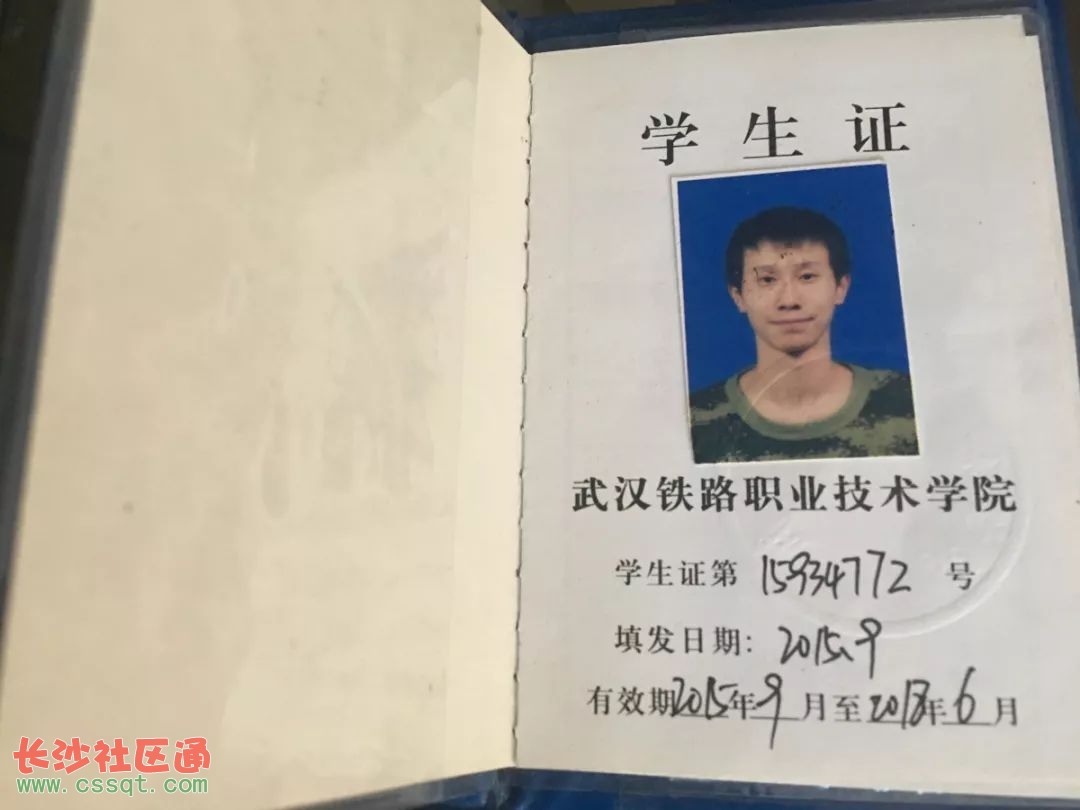 学生证
武汉铁路职业技术学院
学生证第 15934772 号
填发日期: 2015.9
有效期2015年9月至2018年6月
长沙社区通
www.cssqt.com